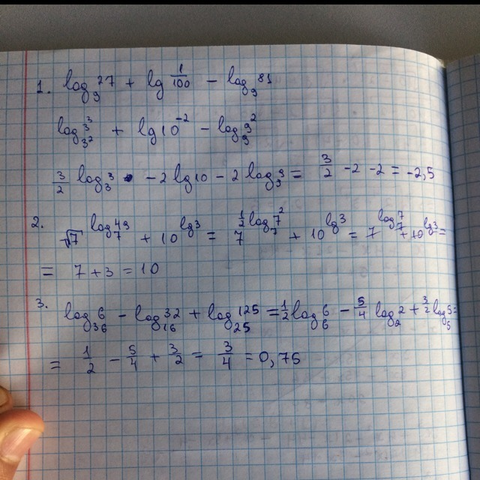 1. log₉27 + lg 1/100 − log₉81
log₃²3³ + lg10⁻² − log₉9²
3/2 log₃3 − 2 lg10 − 2 log₉9 = 3/2 − 2 − 2 = −2,5
2. √7^(log₇49) + 10^(lg3) = 7^(1/2 log₇7²) + 10^(lg3) = 7^(log₇7) + 10^(lg3) =
= 7 + 3 = 10
3. log₃₆6 − log₁₆32 + log₂₅125 = 1/2 log₆6 − 5/4 log₂2 + 3/2 log₅5 =
= 1/2 − 5/4 + 3/2 = 3/4 = 0,75